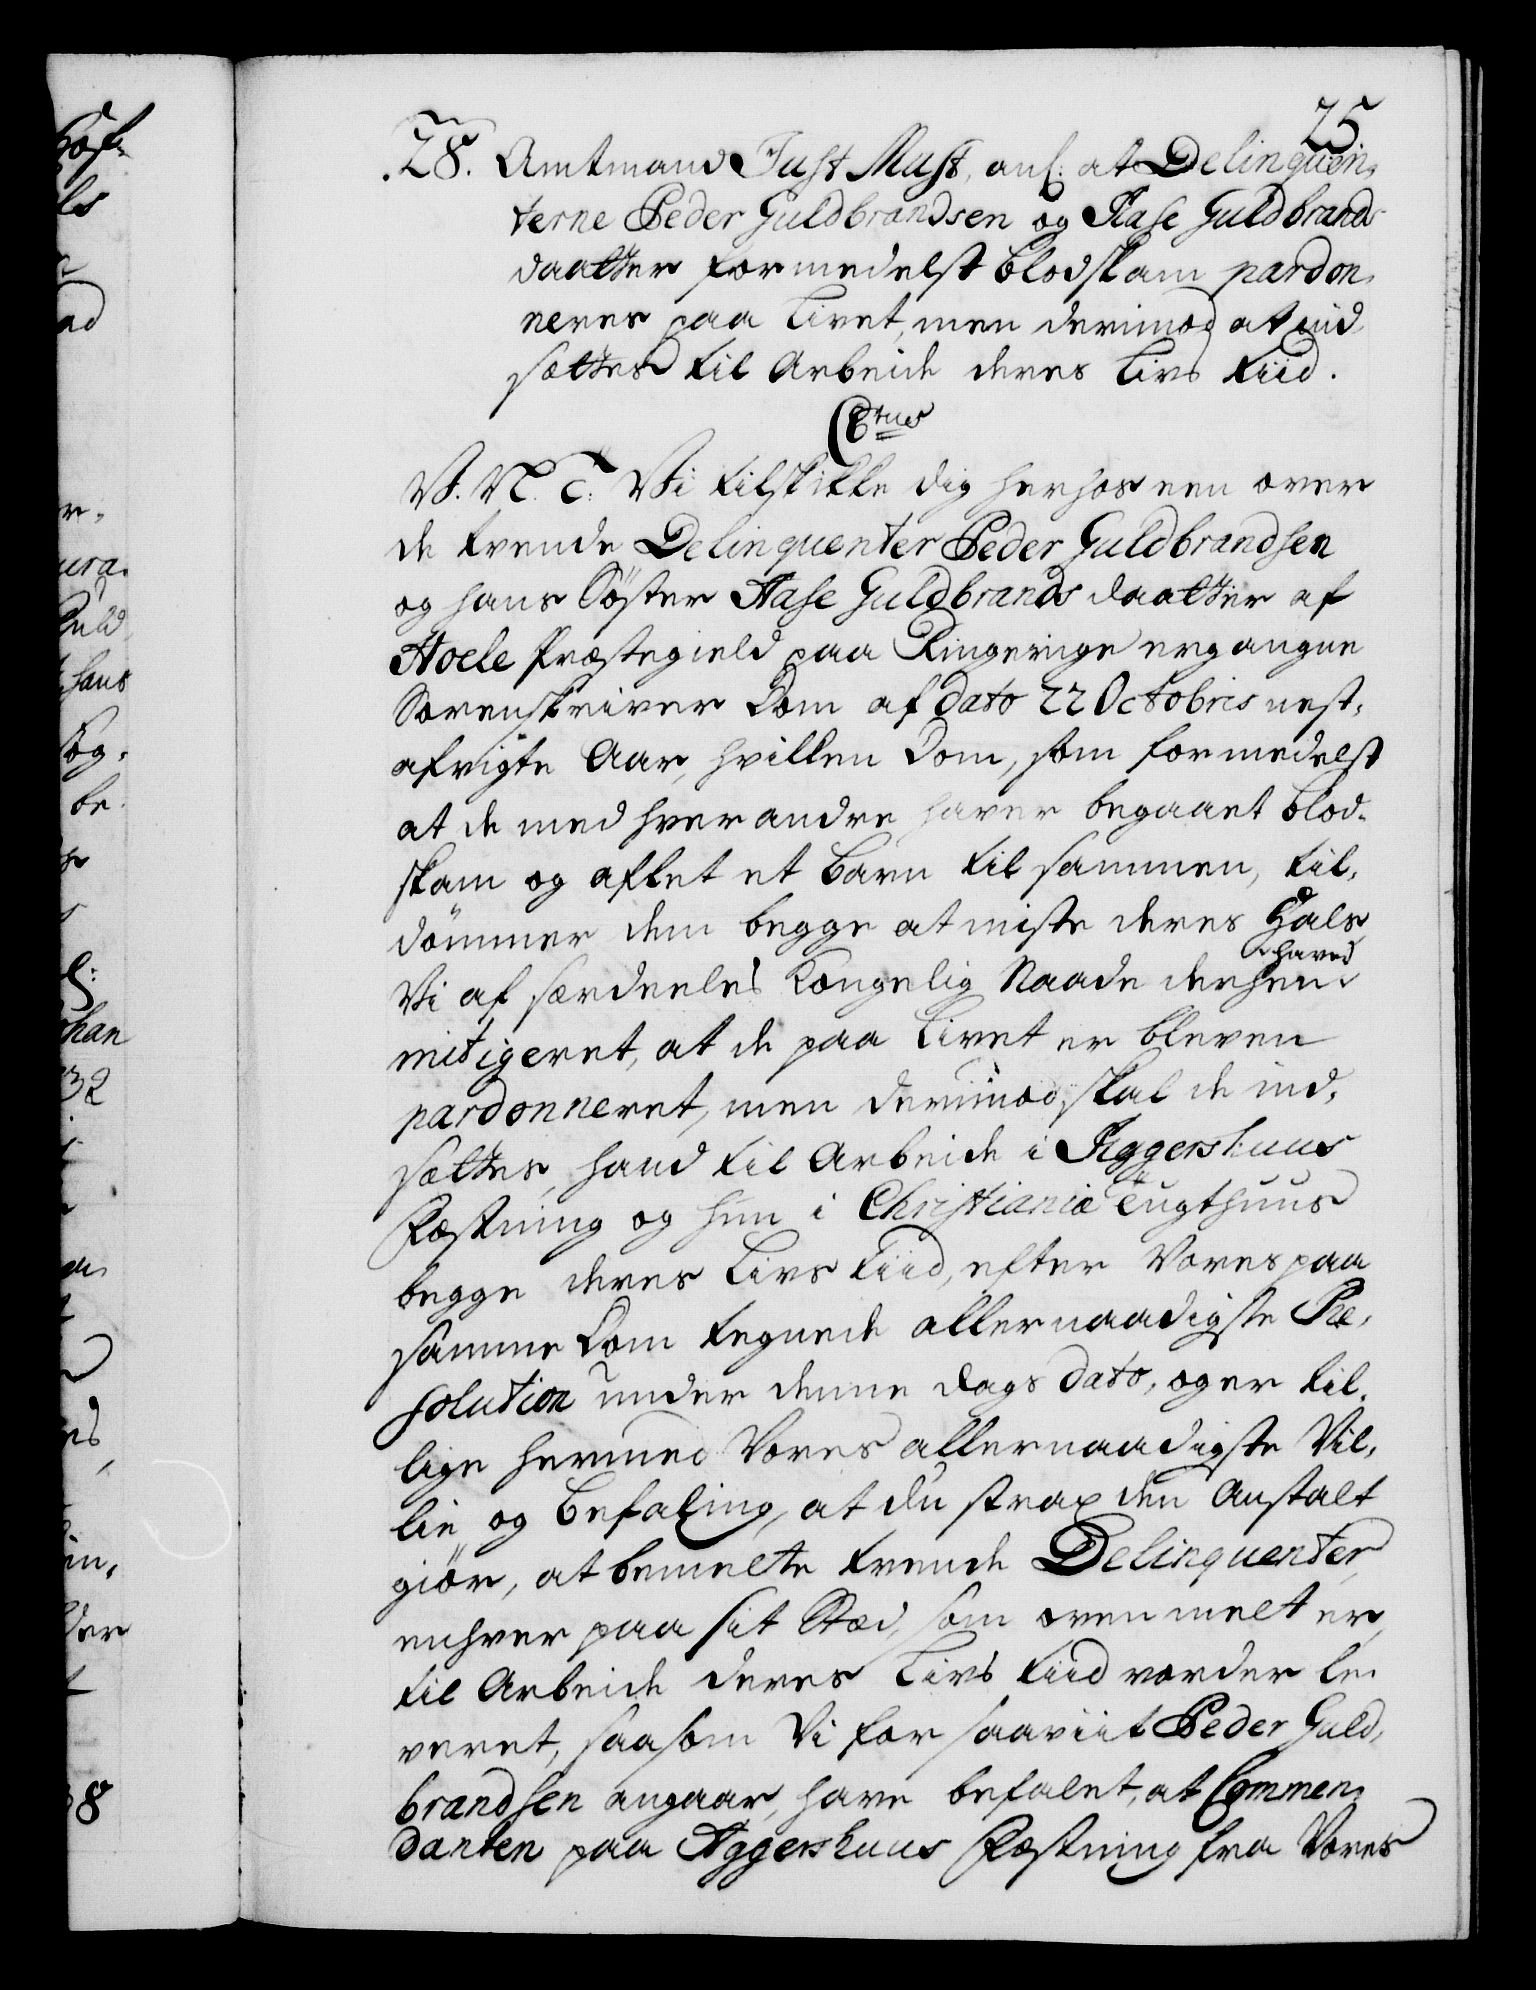 25
28. Amtmand Just Must, anl: at Delinquen,
terne Peder Guldbrandsen og Aase Guldbrands
daatter formedelst blodskam pardon,
neres paa Livet, men derimod at ind
sættes til Arbeide deres Livs Tiid.
C6tus
V. N. T. Vi tilskikke dig herhos een over
de tvende Delinquenter Peder Guldbrandsen
og hans Söster Aase Guldbrands daatter af
Hoele Præstegield paa Ringerige ergangne
Sorenskriver Dom af dato 22 Octobris nest,
afvigte Aar, hvilken Dom, som formedelst
at de med hverandre haver begaaet blod-
skam og aflet et Barn tilsammen, til,
dömmer dem begge at miste deres Hals
haver
Vi af særdeeles Kongelig Naade derhen
mitigeret, at de paa Livet er bleven
pardonneret, men derimod skal de ind,
sættes, hand til Arbeide i Aggershuus
Fæstning og hun i Christianiæ Tugthuus
begge deres Livs Tiid, efter Vores paa
samme Dom tegnede allernaadigste Re,
solution under denne Dags dato, og er til,
lige hermed Vores allernaadigste Vil,
lie og Befaling, at du strax den Anstalt
giör, at bemelte tvende Delinquenter,
enhver paa sit Stæd, som ovenmelt er,
til Arbeide deres Livs Tiid vorder le,
veret, saasom Vi for saaviit Peder Guld,
brandsen angaar, have befalet, at Commen,
danten paa Aggershuus Fæstning fra Vores